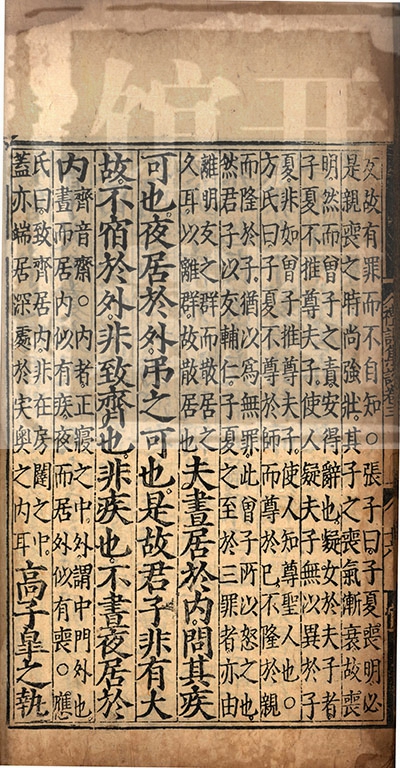 久故有罪而不自知○張子曰子夏喪明必
是親喪之時尚強壯其子之喪氣漸衰故喪
明然而曾子之責安得辭也疑女於夫子者
子夏不推尊夫子使人疑夫子無以異於子
夏非如曾子推尊夫子使人知尊聖人也○
方氏曰子夏不尊於師而尊於已不隆於親
而隆於子猶以爲無罪此曾子所以怒之也
然君子以友輔仁子夏之至於三罪者亦由
離朋友之群而散居之
久耳以離群故散居也
夫晝居於內問其疾
可也夜居於外弔之可也是故君子非有大
故不宿於外非致齊也非疾也不晝夜居於
內
齊音齋○內者正寢之中外謂中門外也
晝而居內似有疾夜而居外似有喪○應
氏曰致齊居內非在房闥之中
蓋亦端居深處於実奧之內耳
高子皐之執